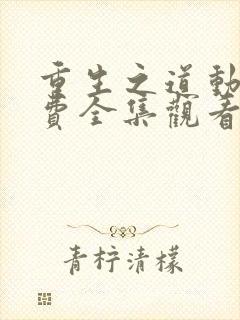 重生之道動
費全集觀看
青柠清檬